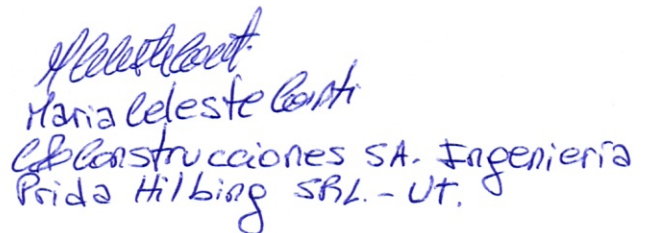 Maria Celeste Conti
Construcciones SA. Ingeniería
Prida Hilbing SRL. - Ut.